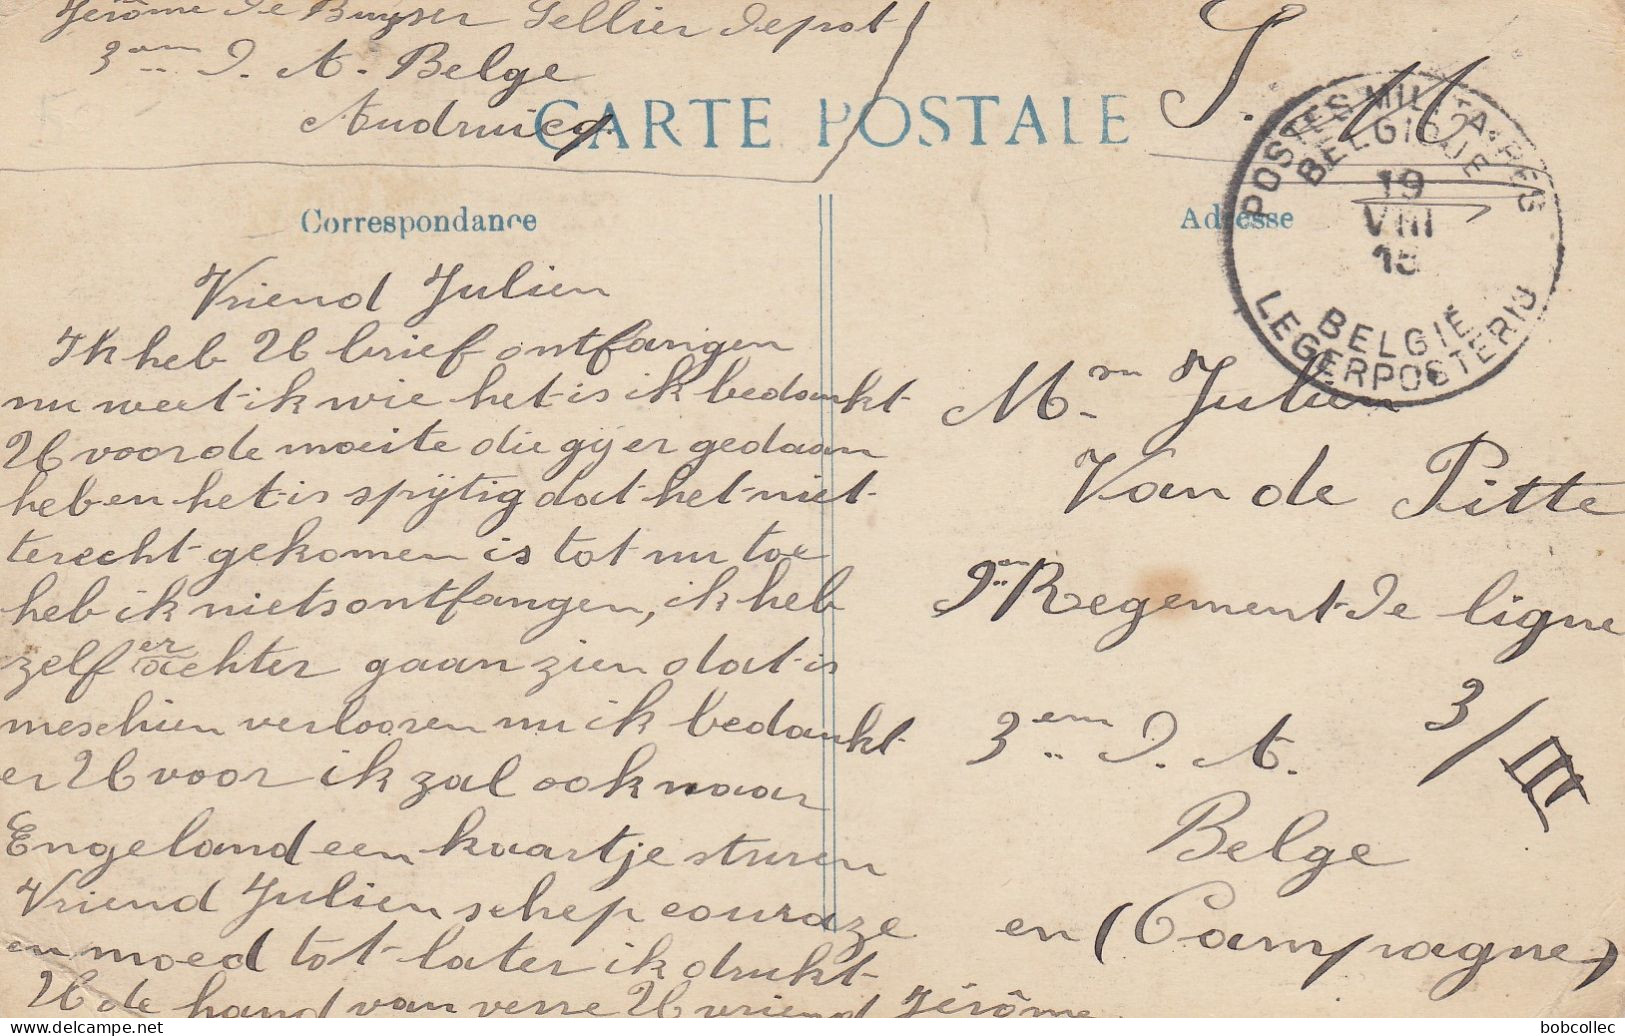 Jérôme De Buyser Sellier Depot
3em D. A. Belge
Audruicq
S. M.
CARTE POSTALE
POSTES MILITAIRES
BELGIQUE
19
VIII
15
BELGIË
LEGERPOSTERIJ
Correspondance
Adresse
Vriend Julien
Ik heb U brief ontfangen
nu weet ik wie het is ik bedankt
U voor de moeite die gij er gedaan
heb en het is spijtig dat het niet
terecht gekomen is tot nu toe
heb ik niets ontfangen, ik heb
zelf er achter gaan zien dat is
meschien verlooren nu ik bedankt
er U voor ik zal ook naar
Engeland een kaartje sturen
Vriend Julien schep couraze
en moed tot later ik drukt
U de hand van verre U vriend Jérôme
Mr Julien
Van de Pitte
9em Regement De ligne
3em D. A. 3/III
Belge
en (Campagne)
bobcollec